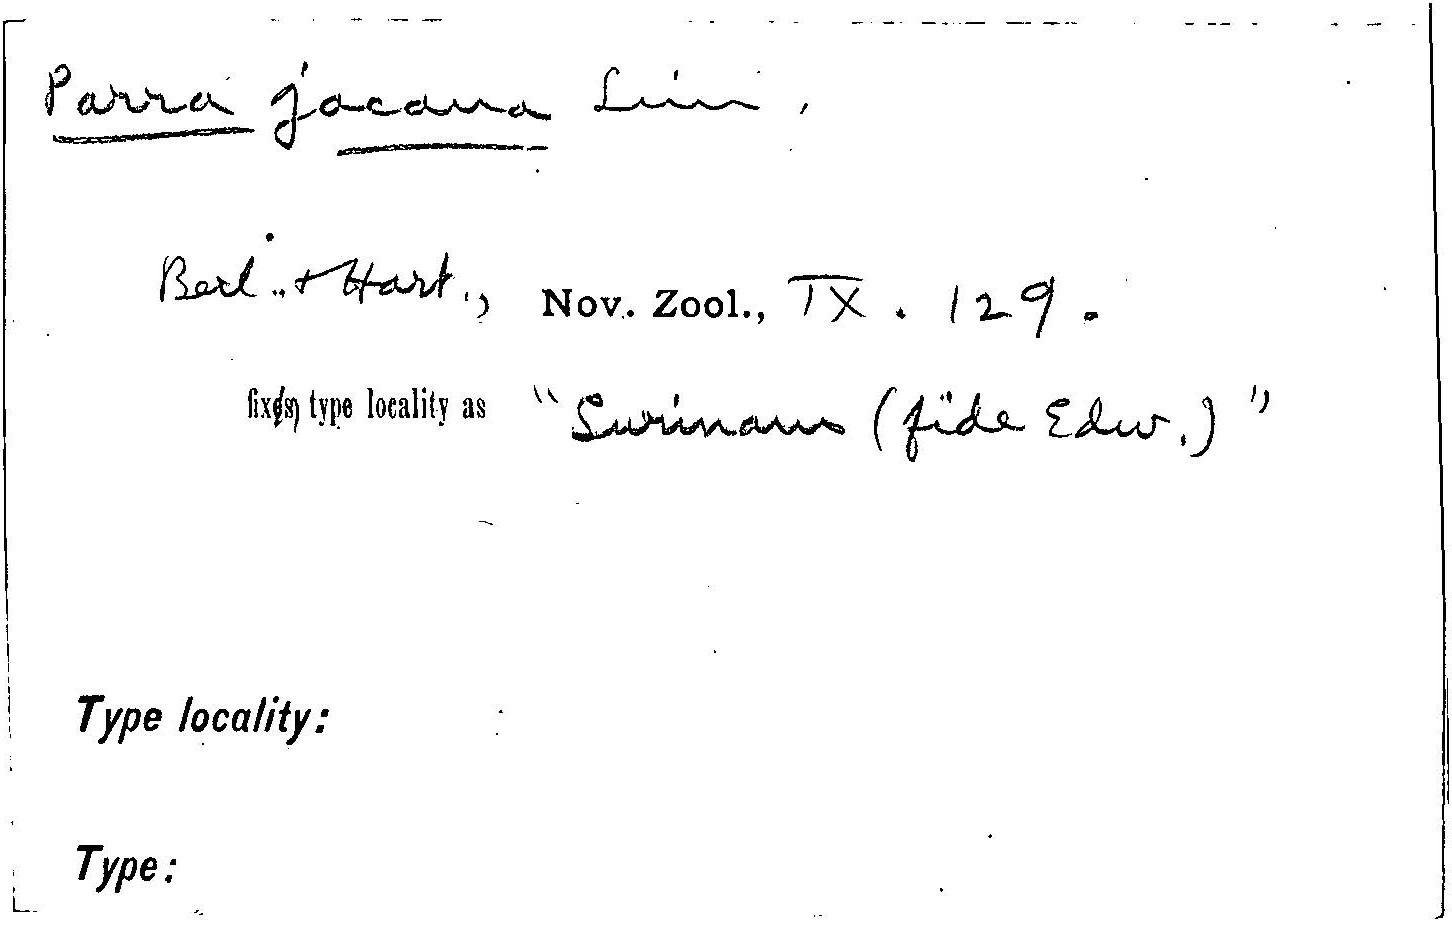 Parra jacana Linn.
Berl. & Hart., Nov. Zool., IX. 129.
fix(es) type locality as "Surinam (fide Edw.)"
Type locality:
Type: